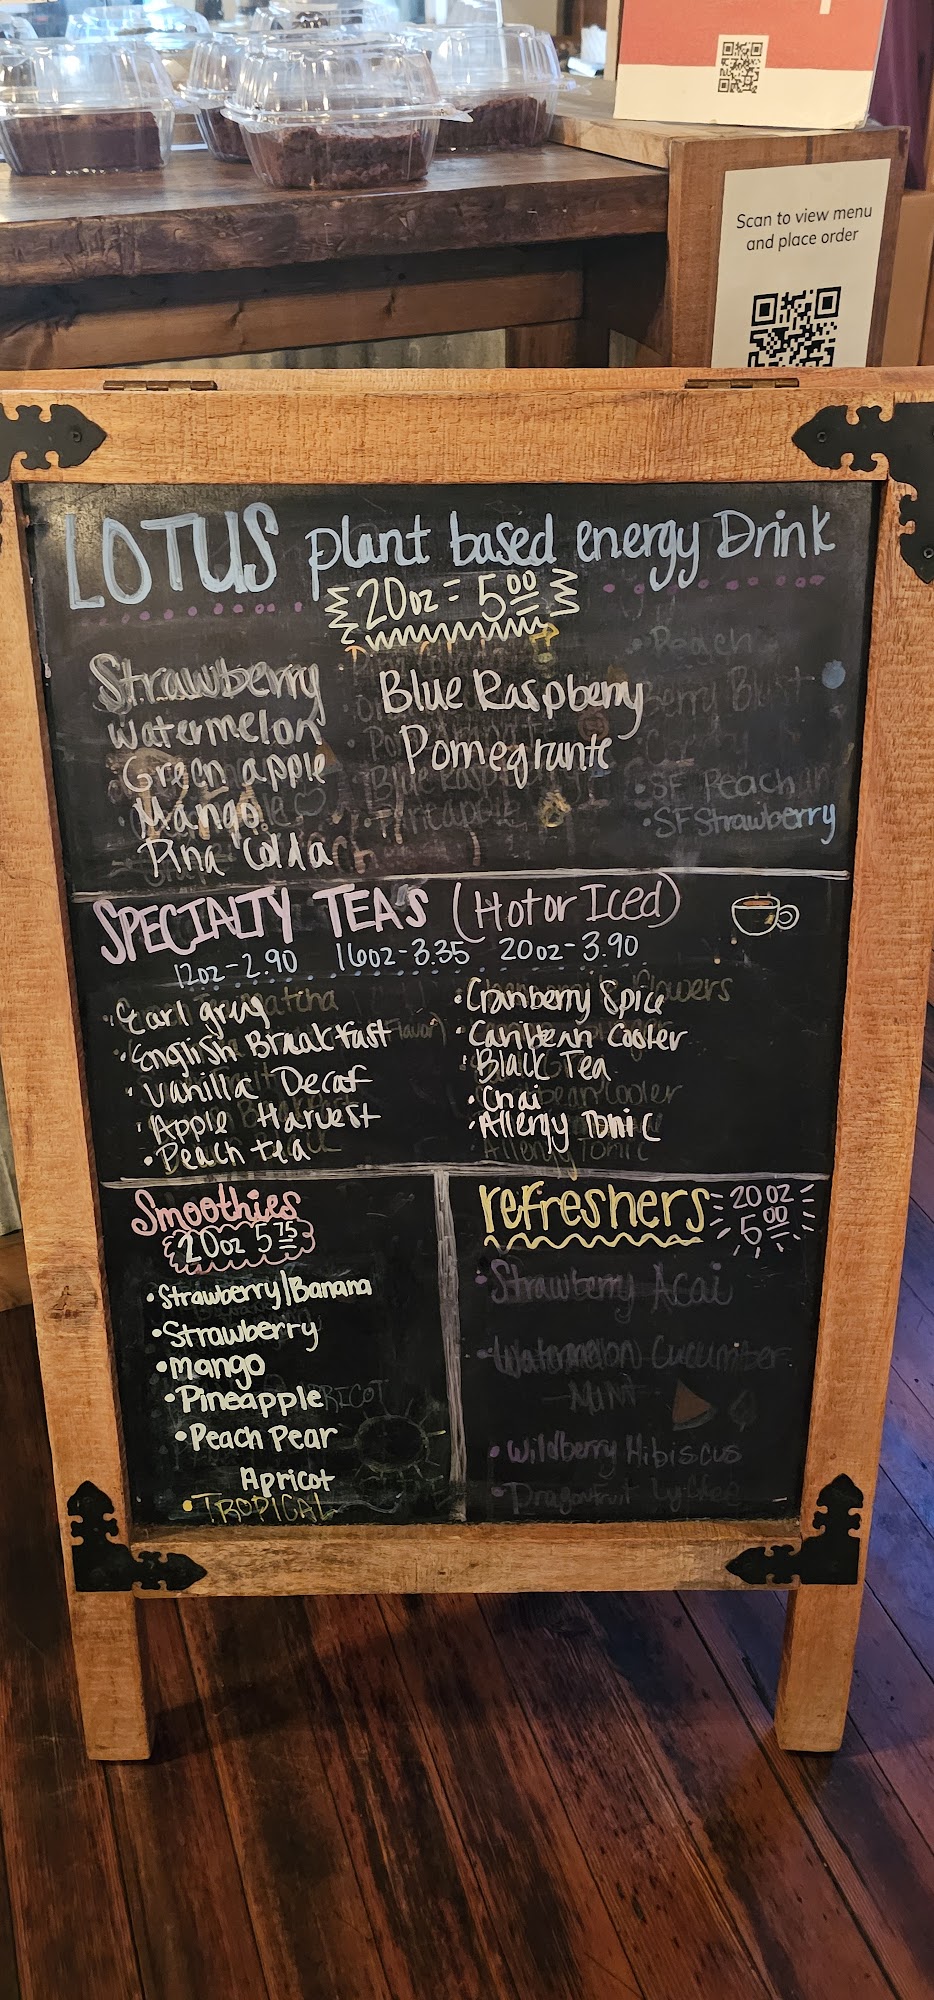 Scan to view menu
and place order
LOTUS plant based energy Drink
20oz = 5.00
Strawberry
Watermelon
Green apple
Mango
Pina Colda
Blue Raspberry
Pomegrante
Peach
Berry Blast
SF Peach
SF Strawberry
SPECIALTY TEAS (Hot or Iced)
12oz-2.90 16oz-3.35 20oz-3.90
• Earl grey
• English Breakfast
• Vanilla Decaf
• Apple Harvest
• Peach tea
• Cranberry Spice
• Caribbean Cooler
• Black Tea
• Chai
• Allergy Tonic
Smoothies
20oz 5.75
• Strawberry/Banana
• Strawberry
• Mango
• Pineapple
• Peach Pear
Apricot
• TROPICAL
refreshers 20oz
5.00
• Strawberry Acai
• Watermelon Cucumber
MINT
• Wildberry Hibiscus
• Dragonfruit Lychee